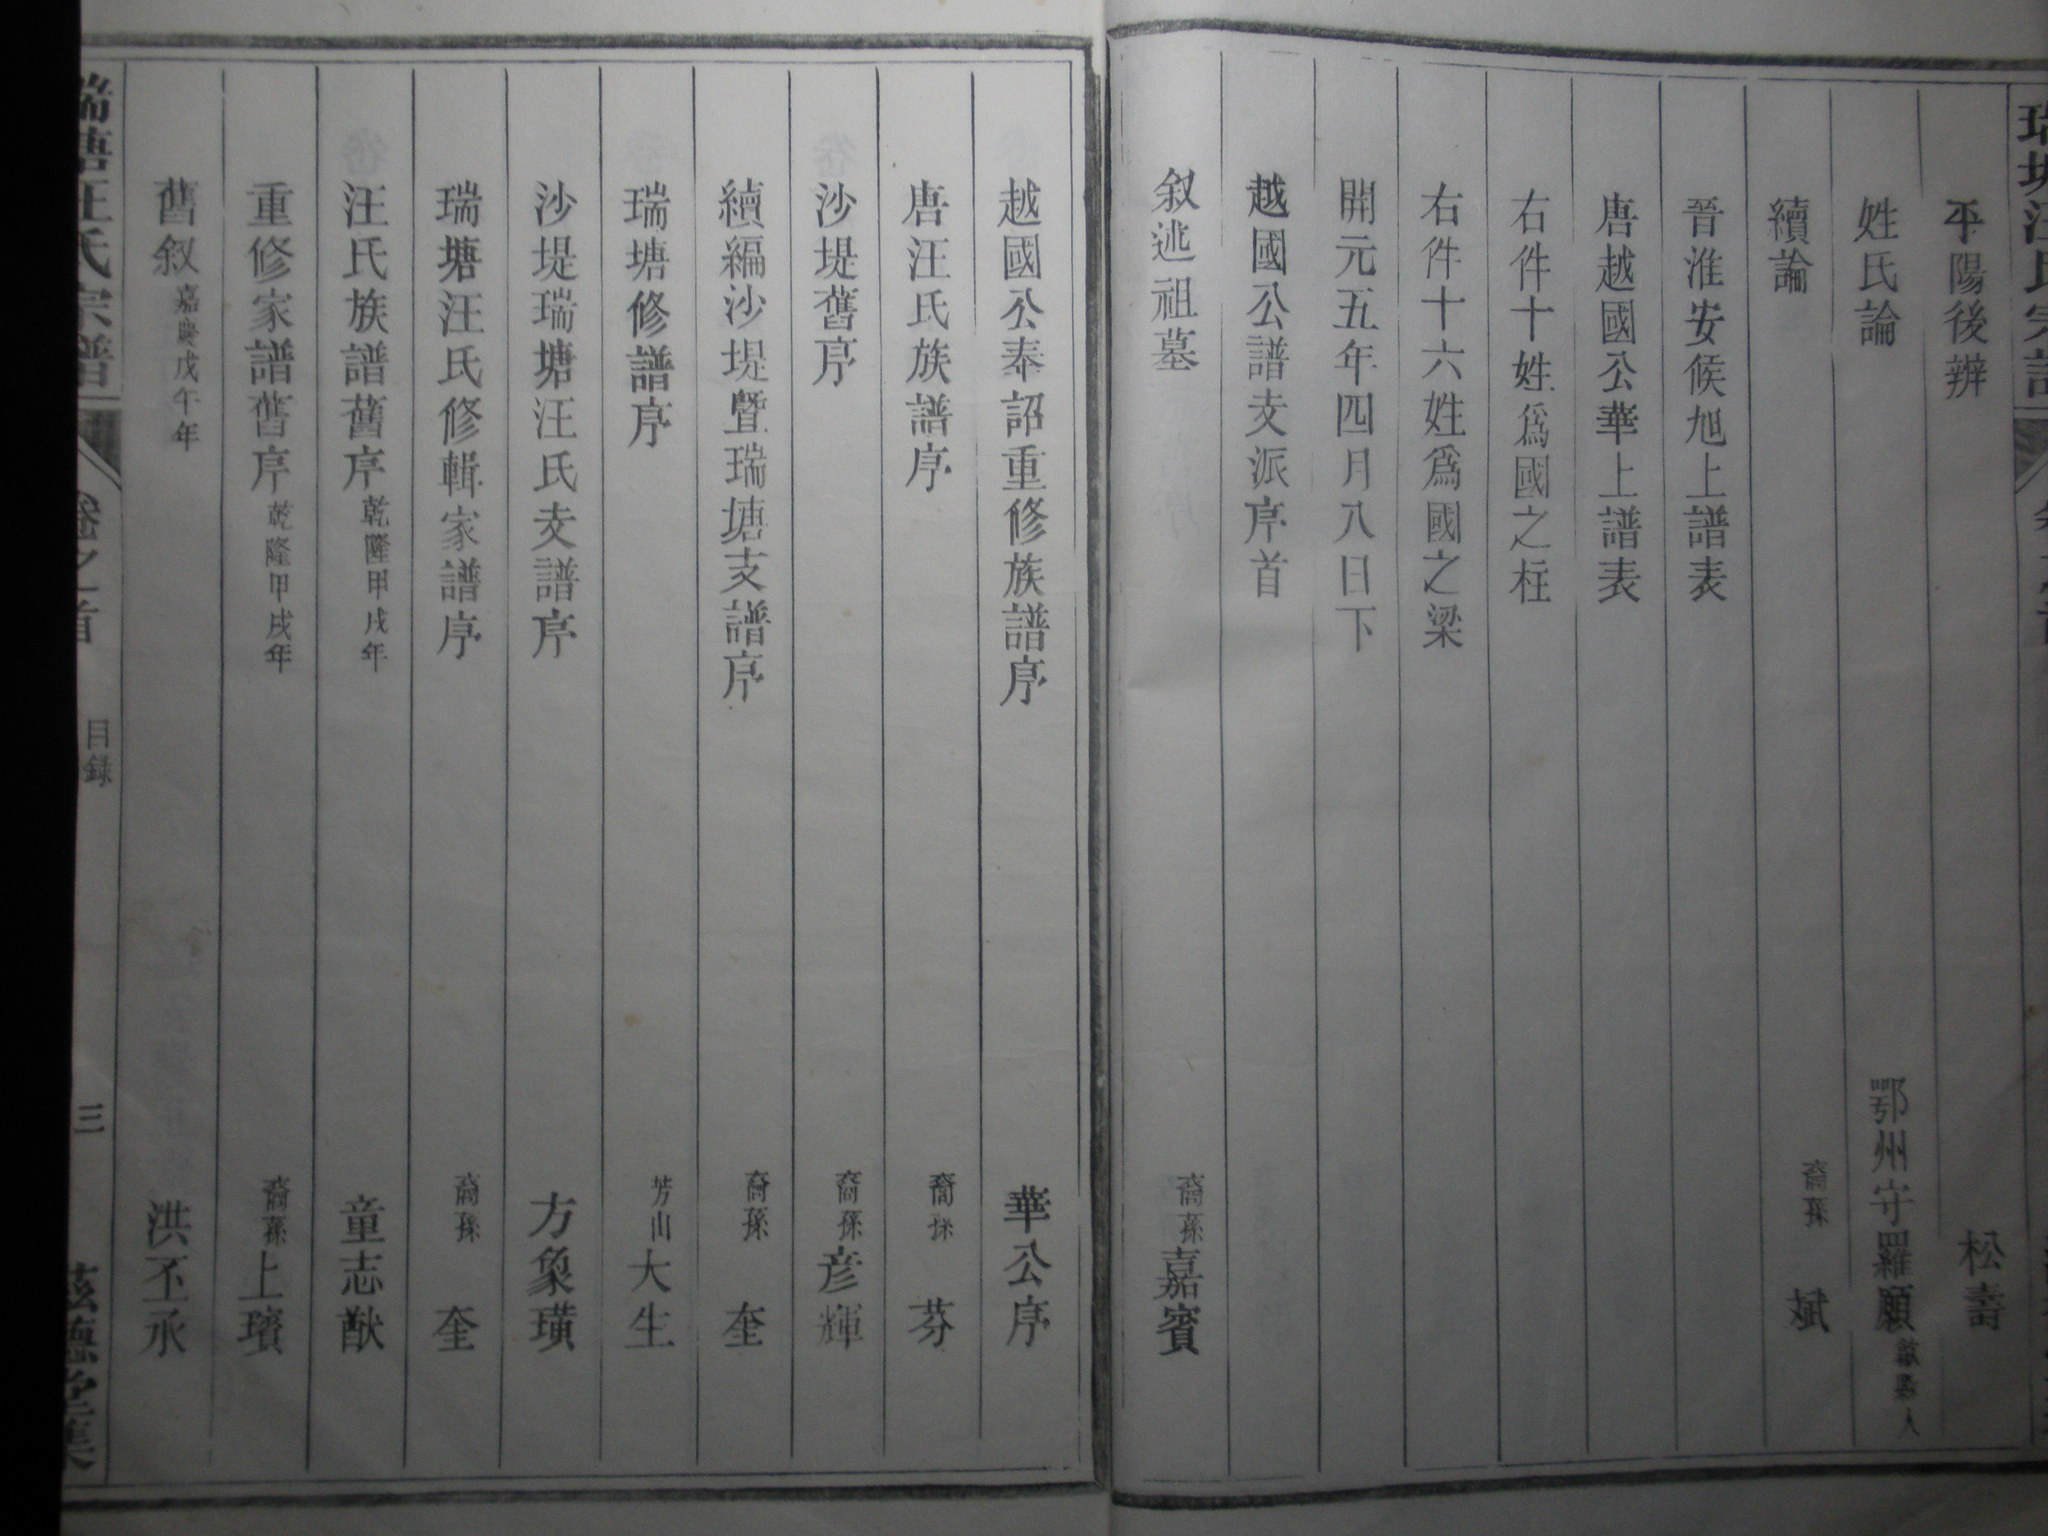 平陽後辨 松壽
姓氏論 鄂州守羅願歙縣人
續論 裔孫 斌
晉淮安候旭上譜表
唐越國公華上譜表
右件十姓爲國之柱
右件十六姓爲國之梁
開元五年四月八日下
越國公譜支派序首
叙述祖墓 裔孫嘉賓
越國公奉詔重修族譜序 華公序
唐汪氏族譜序 裔孫 芬
沙堤舊序 裔孫彦輝
續編沙堤暨瑞塘支譜序 裔孫 奎
瑞塘修譜序 芳山大生
沙堤瑞塘汪氏支譜序 方象璜
瑞塘汪氏修輯家譜序 裔孫 奎
汪氏族譜舊序乾隆甲戌年 童志猷
重修家譜舊序乾隆甲戌年 裔孫上璸
舊叙嘉慶戊午年 洪丕承
瑞塘汪氏宗譜 卷之首 目録 三